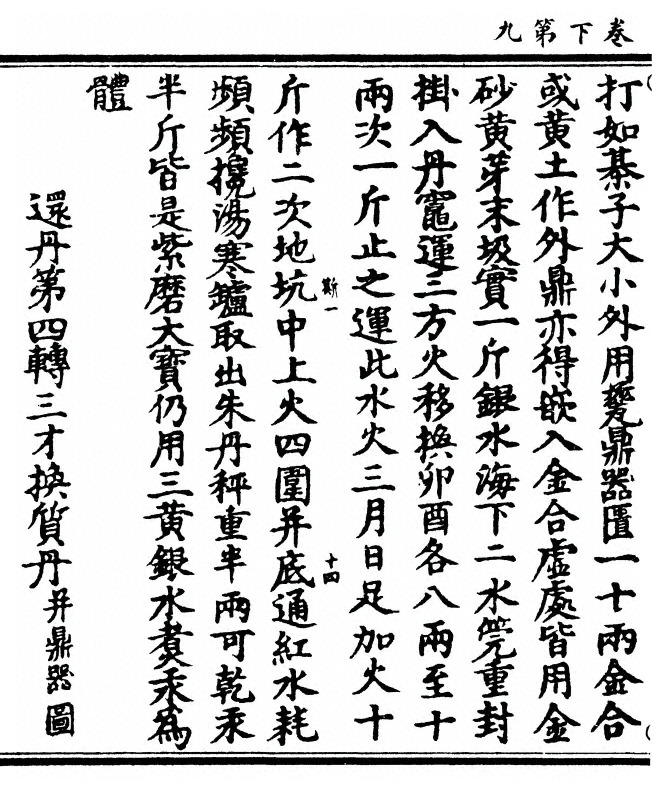 卷下第九
打如棊子大小外用甆鼎器匱一十兩金合
或黃土作外鼎亦得嵌入金合虛處皆用金
砂黃芽末圾實一斤銀水海下二水筦重封
掛入丹竈運三方火移換卯酉各八兩至十
兩次一斤止之運此水火三月日足加火十
斤作二次地坑中上火四圍并底通紅水耗
頻頻攙湯寒爐取出朱丹秤重半兩可乾汞
半斤皆是紫磨大寶仍用三黃銀水煑汞爲
體
還丹第四轉三才換質丹并鼎器圖
斯一
十四